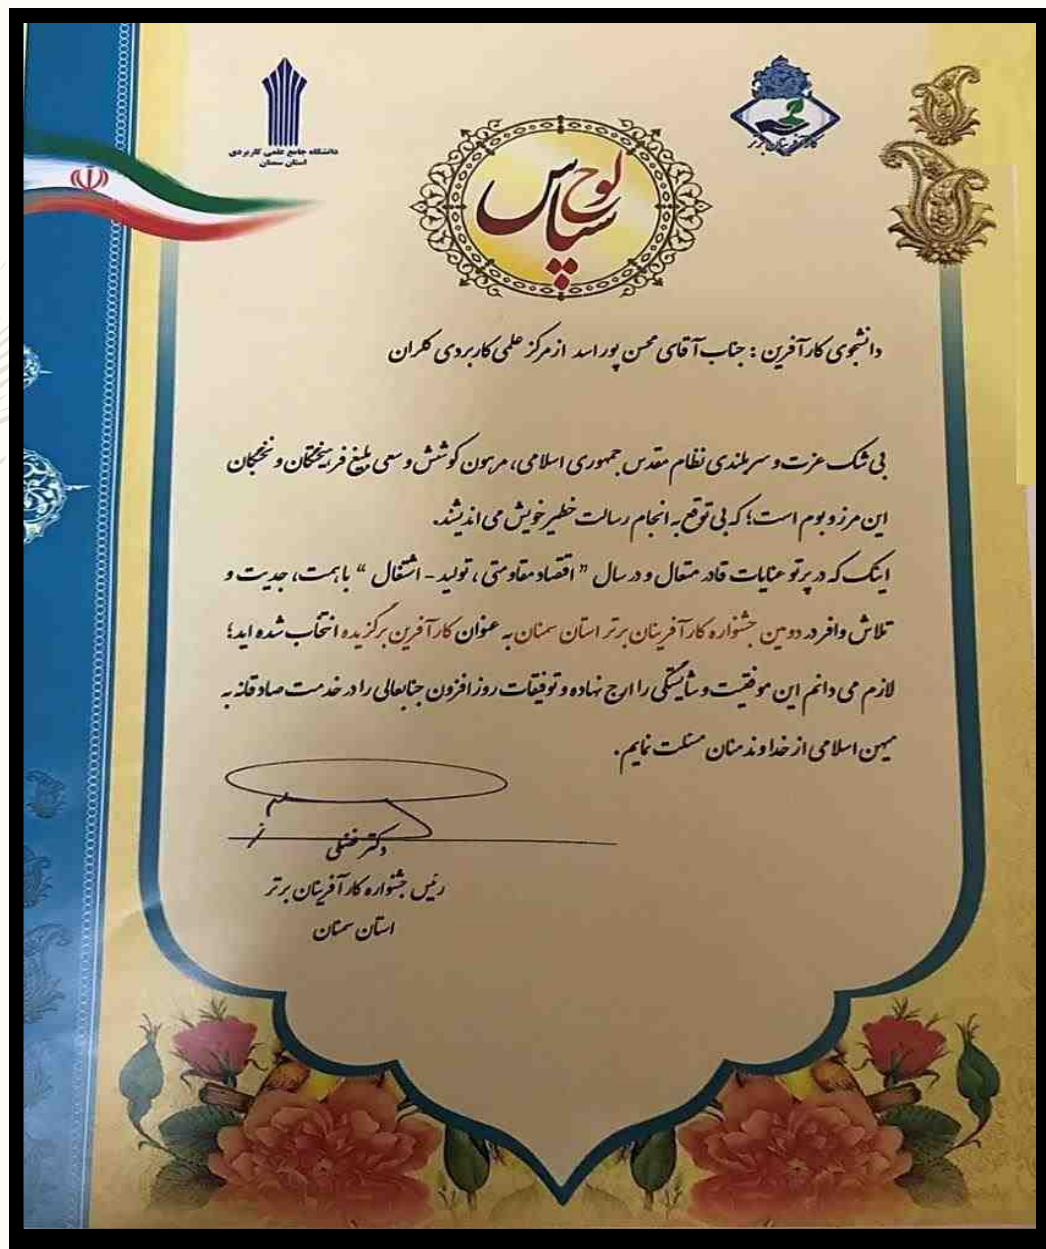 دانشگاه جامع علمی کاربردی
استان سمنان
کارآفرینان برتر
لوح سپاس
دانشجوی کارآفرین : جناب آقای محسن پور اسد از مرکز علمی کاربردی کلران
بی شک عزت و سربلندی نظام مقدس جمهوری اسلامی، مرهون کوشش و سعی بلیغ فرهیختگان و نخبگان
این مرز و بوم است؛ که بی توقع به انجام رسالت خطیر خویش می اندیشند.
اینک که در پرتو عنایات قادر متعال و در سال " اقتصاد مقاومتی ، تولید - اشتغال " با همت، جدیت و
تلاش وافر در دومین جشنواره کارآفرینان برتر استان سمنان به عنوان کارآفرین برگزیده انتخاب شده اید؛
لازم می دانم این موفقیت و شایستگی را ارج نهاده و توفیقات روز افزون جنابعالی را در خدمت صادقانه به
میهن اسلامی از خداوند منان مسئلت نمایم.
دکتر فضلی
رئیس جشنواره کارآفرینان برتر
استان سمنان